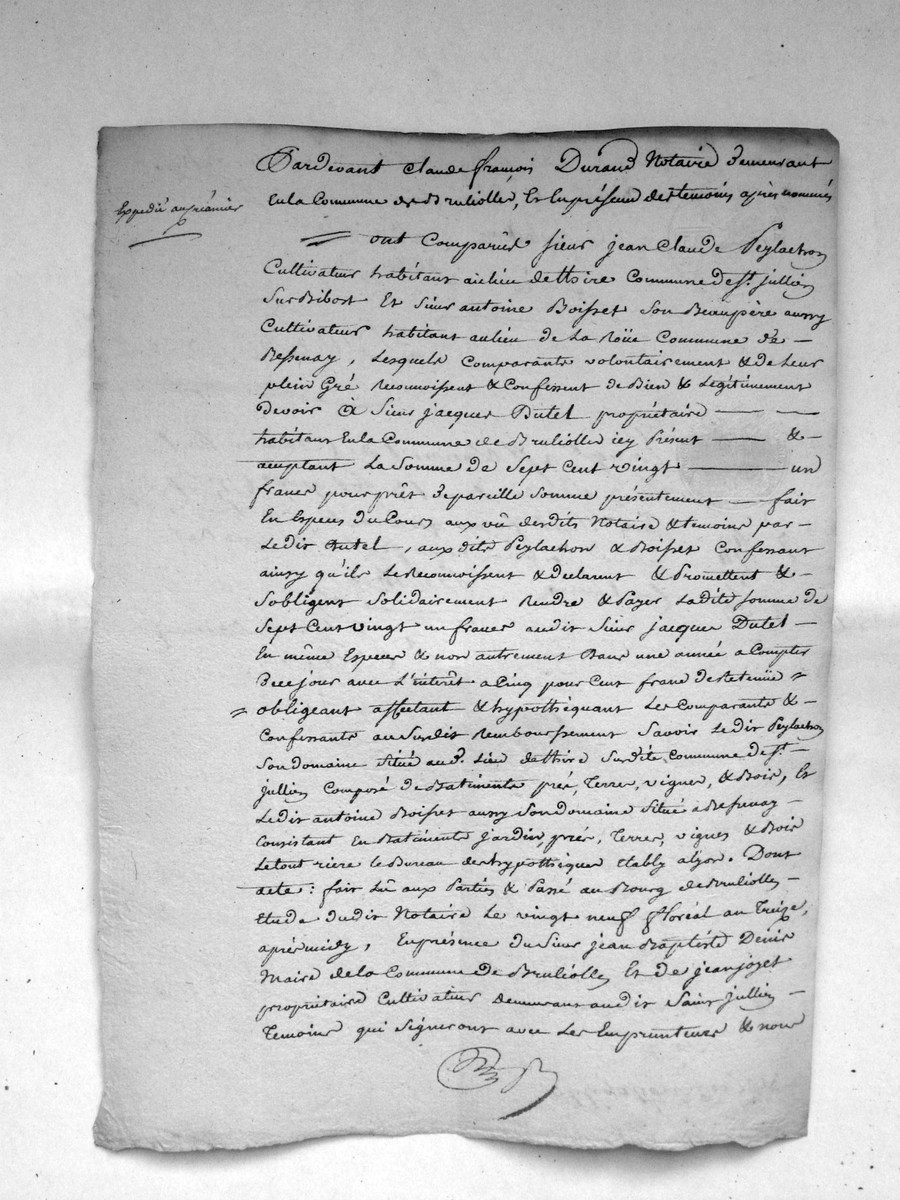 Pardevant Claude françois Durand Notaire demeurant
Expedié au créancier
En la Commune de Brulliolle, Et En présence des temoins après nommés
ont Comparûs sieur jean Claude Peylachon
Cultivateur habitant au lieu de Commune de St. jullien
Sur Bibost Et Sieur antoine Boisset Son Beaupère aussy
Cultivateur habitant au lieu de La Roüe Commune de —
Bessenay, Lesquels Comparants volontairement & de Leur
plein Gré Reconnoissent & Confessent de Bien & Légitimement
Devoir à Sieur jacques Dutel propriétaire — —
habitant En la Commune de Brulliolle icy Présent — & —
acceptant La Somme de Sept Cent vingt — un
francs pour prêt de pareille Somme présentement — fait
En Espèces du Cours aux vû desdits Notaire & temoins par —
Ledit Dutel, aux dits Peylachon & Boisset Confessant
ainsy qu'ils Le Reconnoissent & declarent & Promettent & —
S'obligent Solidairement Rendre & Payer Ladite Somme de
Sept Cent vingt un francs audit Sieur jacques Dutel —
En même Espèces & non autrement Dans une année a Compter
De ce jour avec L'intérêt a Cinq pour Cent franc de Retenüe =
= obligeant affectant & hypothéquant Les Comparants & —
Confessants au Susdit Remboursement Savoir Ledit Peylachon
Son domaine Situé aud. Lieu de Susdite Commune de St. —
jullien Composé de Batiments prés, Terres, vignes, & Bois, Et
Ledit antoine Boisset aussy Son domaine Situé a Bessenay —
Consistant En Batiments jardin, prés, Terres, vignes & Bois
Le tout rière Le Bureau des hypothèques Etably a Lyon. Dont
acte : fait Lû aux Parties & Passé au Bourg de Brulliolle —
Etude dudit Notaire Le vingt neuf floréal an Treize,
après midy, En présence du Sieur jean Baptiste Denis
Maire de la Commune de Brulliolle Et de jean jozet
propriétaire Cultivateur Demeurant audit Saint jullien —
Temoins qui Signeront avec Les Emprunteurs & nous